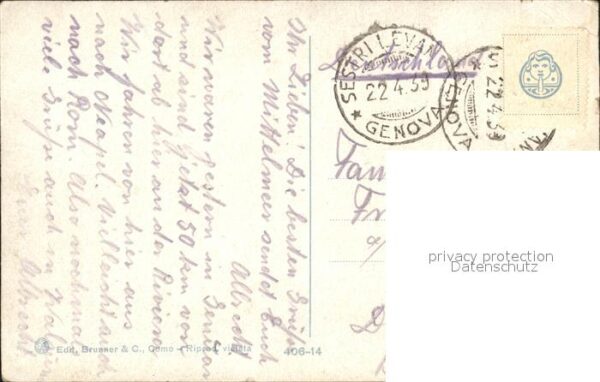 Ihr Lieben! Die besten Grüße
vom Mittelmeer sendet Euch
Albrecht
Wir waren gestern in Genua
und sind jetzt 50 km von
dort ab hier an der Riviera
Wir fahren von hier aus
nach Neapel. Vielleicht auch
nach Rom. Also nochmal
viele Grüße auch in
Euer Albrecht
Deutschland
SESTRI LEVAN
22.4.39
GENOVA
22.4.39
GENOVA
Fam
Fr
privacy protection
Datenschutz
Edit. Brunner & C., Como – Riprod. vietata
406-14